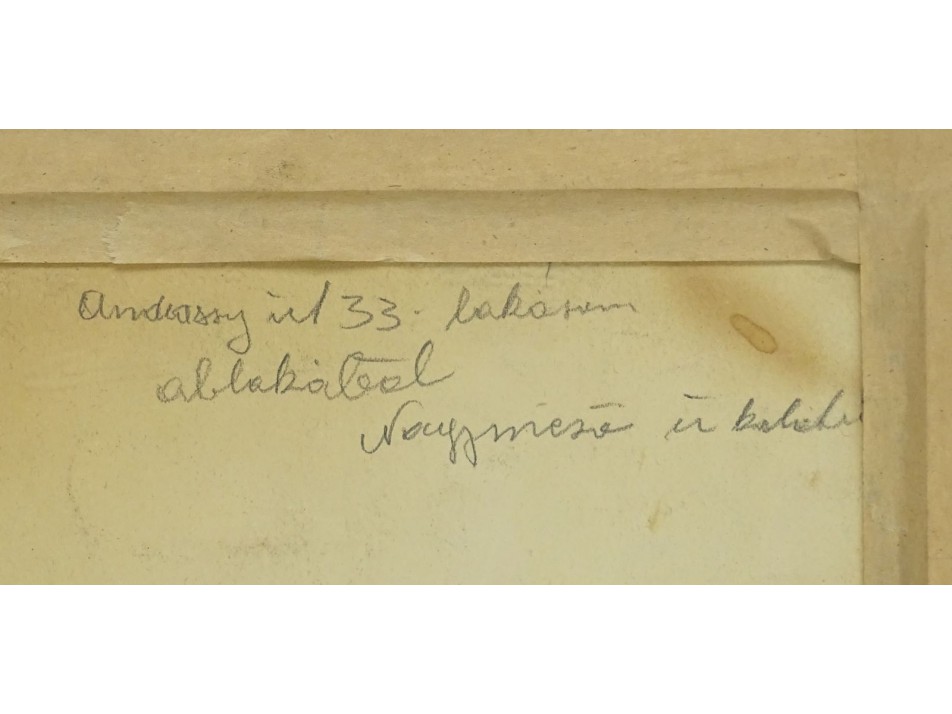 Andrassy út 33. lakásom
ablakából
Nagymező u